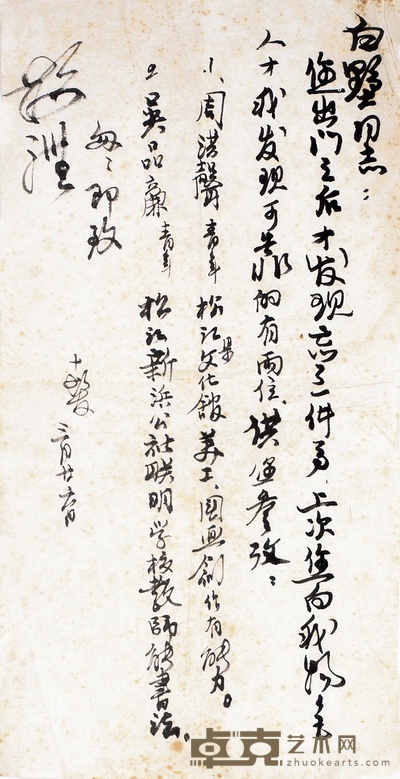 同志：
您出门之后才发现忘了一件事，上次您向我
人才我发现可告的有两位，供您参攷：
1、周洪声 青年 松江县文化馆美工，国画创作有能力。
2 吴品廉 青年 松江新浜公社联明学校教师能书法。
匆匆即致
敬礼
十髮 三月廿六日
卓克艺术网
zhuokearts.com